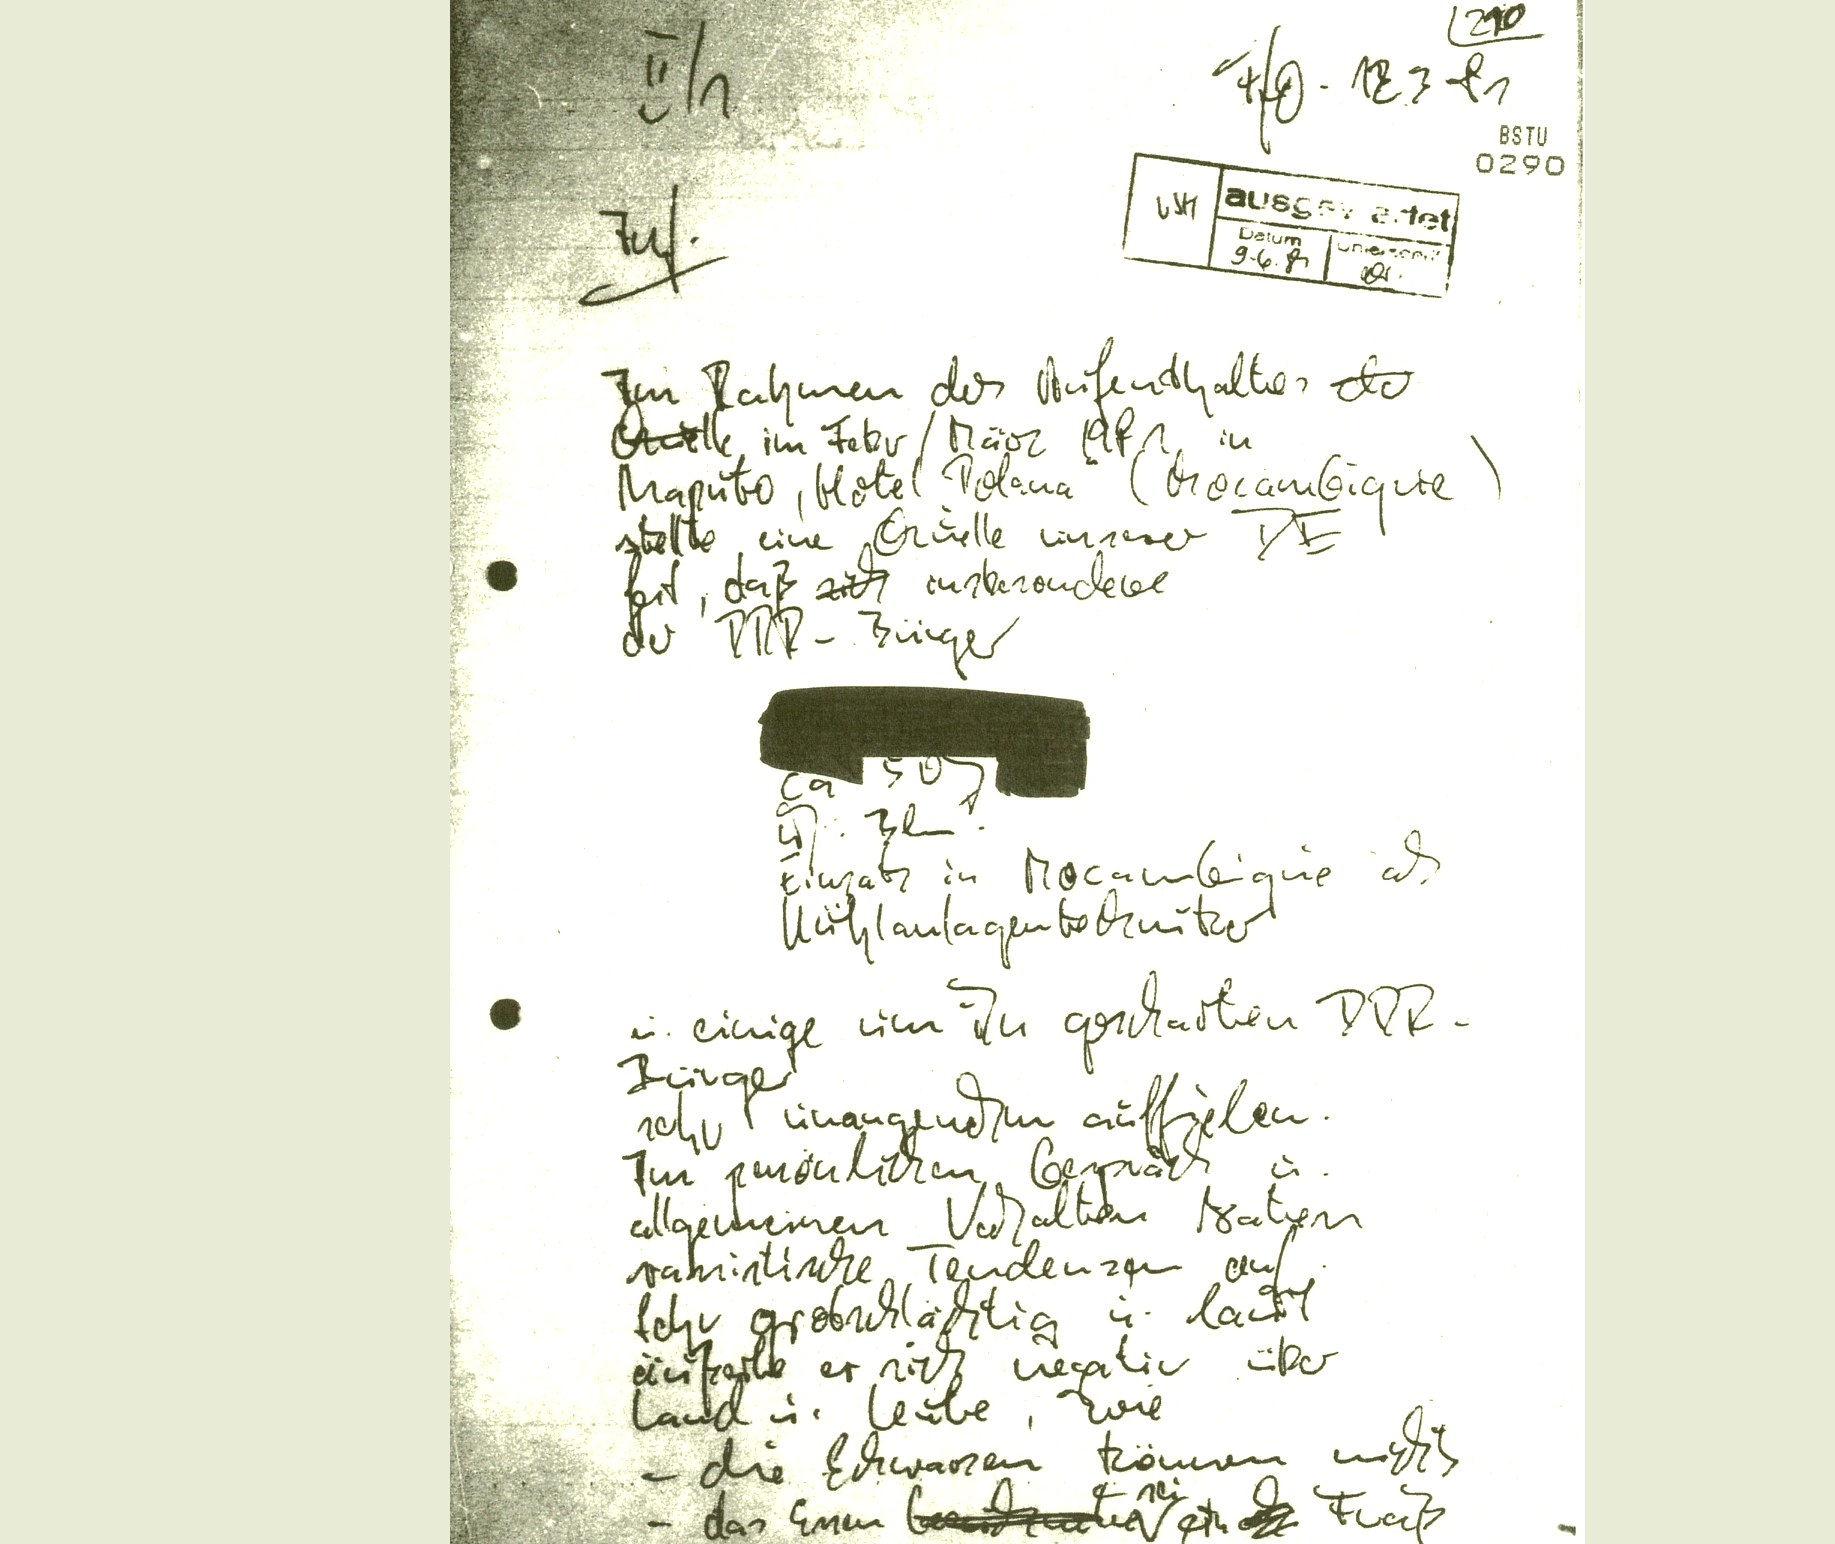 290
II/1
12.3.81
BSTU
0290
ausgewertet
Datum
Unterschrift
9.6.81
Inf.
Im Rahmen des Aufenthaltes der
Quelle im Febr/März 1981 in
Maputo, Hotel Polana (Mocambique)
stellte eine Quelle unserer DE
fest, daß sich insbesondere
der DDR-Bürger
ca 50 J
wh. Bln.
Einsatz in Mocambique als
Kühlanlagentechniker
u. einige um ihn gescharten DDR-
Bürger
sehr unangenehm auffielen.
Im persönlichen Gespräch u.
allgemeinen Verhalten traten
rassistische Tendenzen auf.
Sehr grobschlächtig u. laut
äußerte er sich negativ über
Land u. Leute, wie
- die Schwarzen können nichts
- das Essen sei Fraß